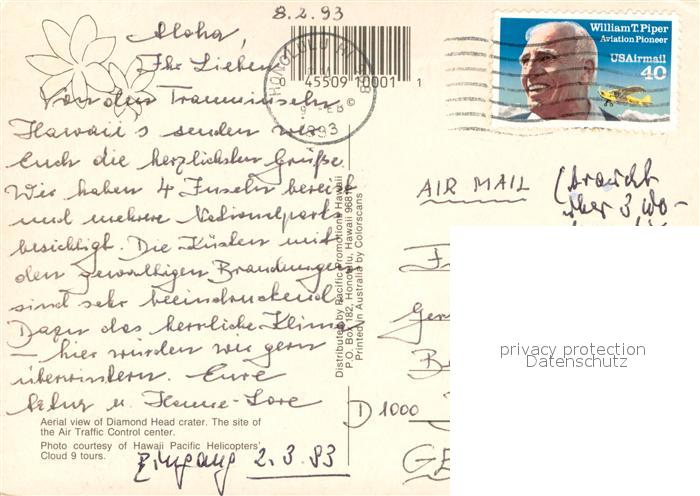 8.2.93
Aloha,
Ihr Lieben
Von den Trauminseln
Hawaii's senden wir
Euch die herzlichsten Grüße.
Wir haben 4 Inseln bereist
und mehrere Nationalparks
besichtigt. Die Küsten mit
den gewaltigen Brandungen
sind sehr beeindruckend.
Dazu das herrliche Klima
– hier würden wir gern
überwintern. Eure
u. Hanne-Lore
Aerial view of Diamond Head crater. The site of
the Air Traffic Control center.
Photo courtesy of Hawaii Pacific Helicopters'
Cloud 9 tours.
Eingang 2.3.93
0 45509 10001 1
©
Distributed by Pacific Promotions Hawaii
P.O. Box 182, Honolulu, Hawaii
Printed in Australia by Colorscans
HONOLULU HI
FEB
1993
William T. Piper
Aviation Pioneer
USAirmail
40
AIR MAIL
(braucht
über 3 Wo-
D 1000
privacy protection
Datenschutz